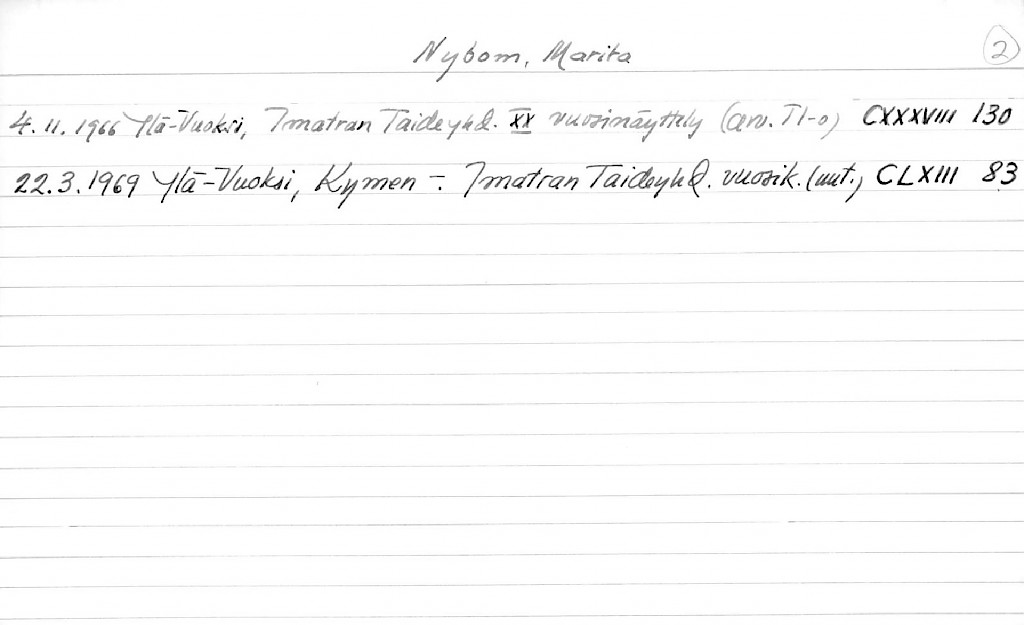 Nybom, Marita 2
4.11.1966 Ylä-Vuoksi, Imatran Taideyhd. XX vuosinäyttely (arv. TI-o) CXXXVIII 130
22.3.1969 Ylä-Vuoksi, Kymen -: Imatran Taideyhd. vuosik. (uut.) CLXIII 83